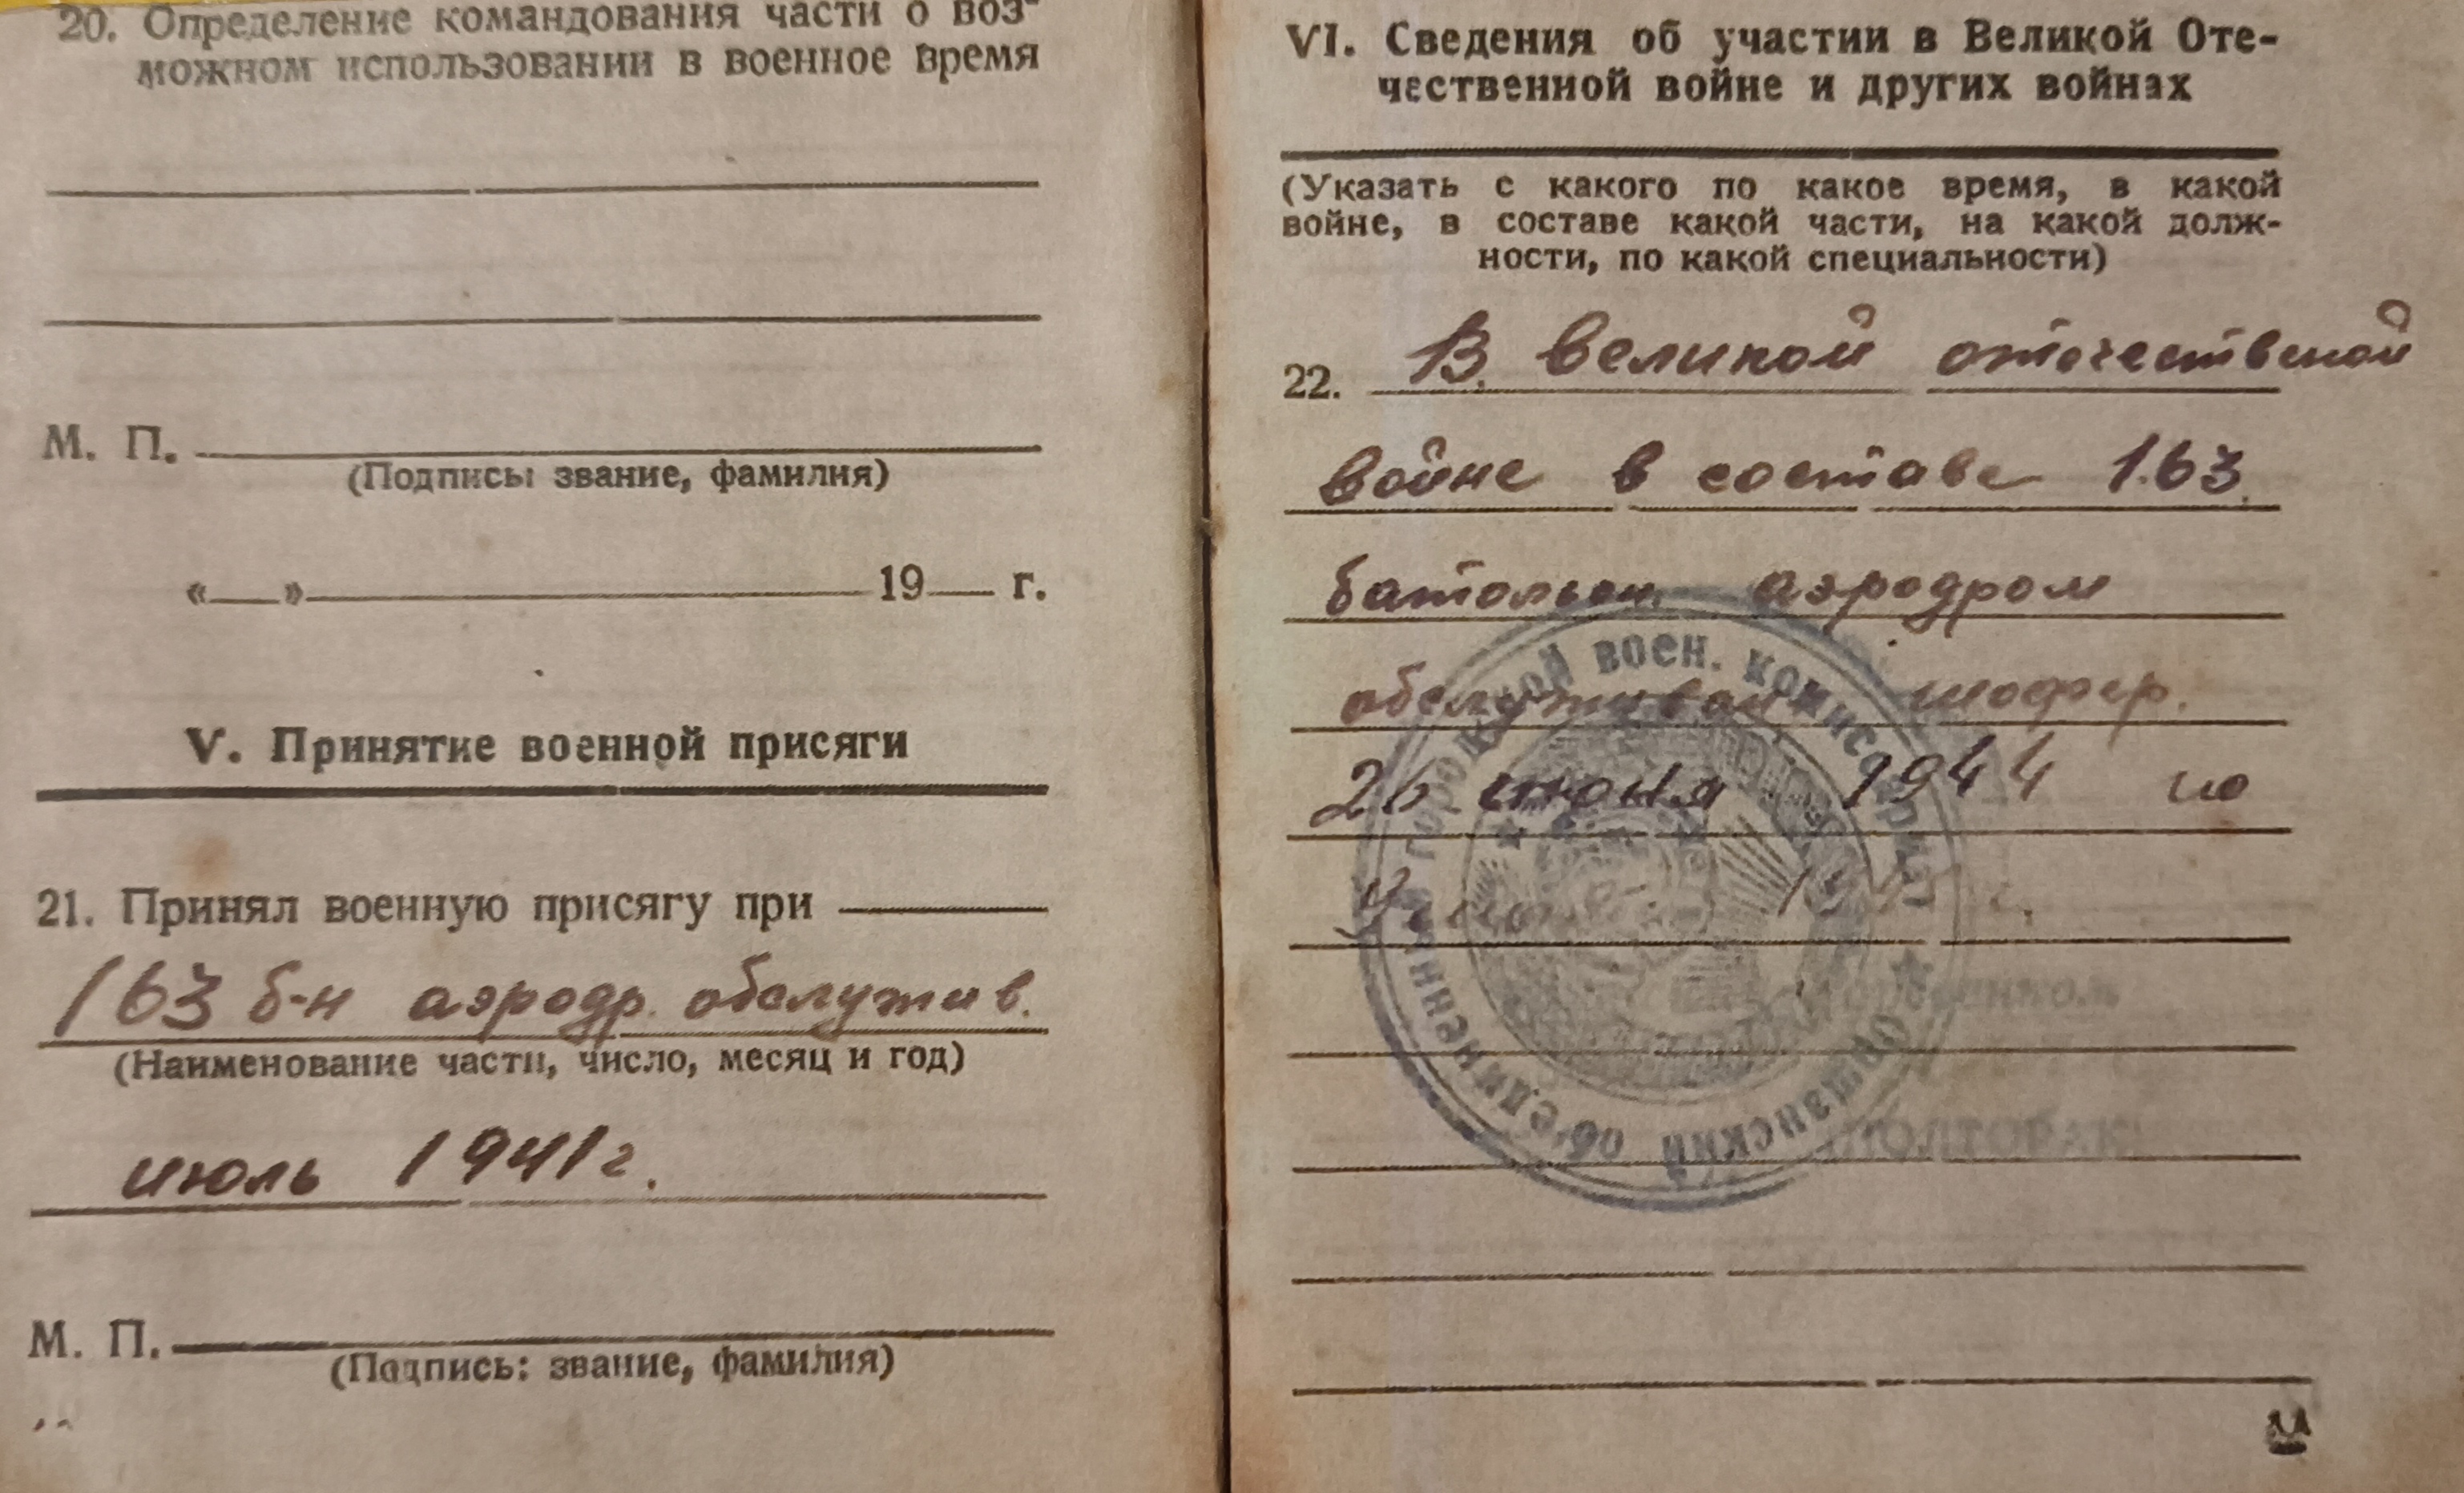 20. Определение командования части о воз-
можном использовании в военное время
М. П.
(Подпись: звание, фамилия)
«__» 19__ г.
V. Принятие военной присяги
21. Принял военную присягу при
163 б-н аэродр. обслужив.
(Наименование части, число, месяц и год)
июль 1941 г.
М. П.
(Подпись: звание, фамилия)
VI. Сведения об участии в Великой Оте-
чественной войне и других войнах
(Указать с какого по какое время, в какой
войне, в составе какой части, на какой долж-
ности, по какой специальности)
22. В великой отечественой
войне в составе 163
батольон аэродром
обслуживан шофер.
26 июня 1944 по
г.
Оршанский об'единенный городской воен. комиссариат